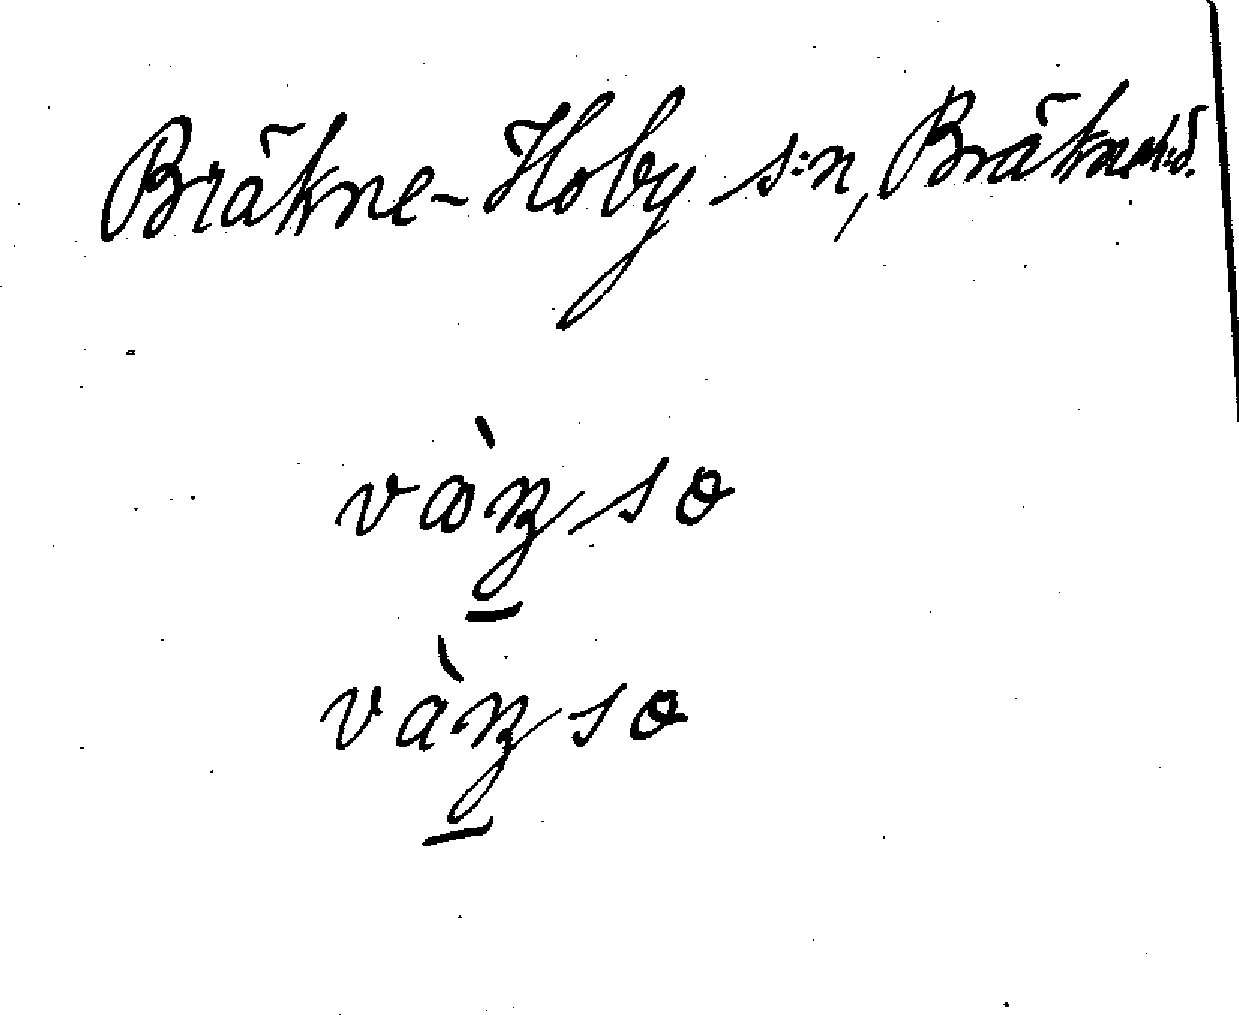 Bräkne-Hoby s:n, Bräkne h:d.
vàŋsɵ
vàŋsɵ